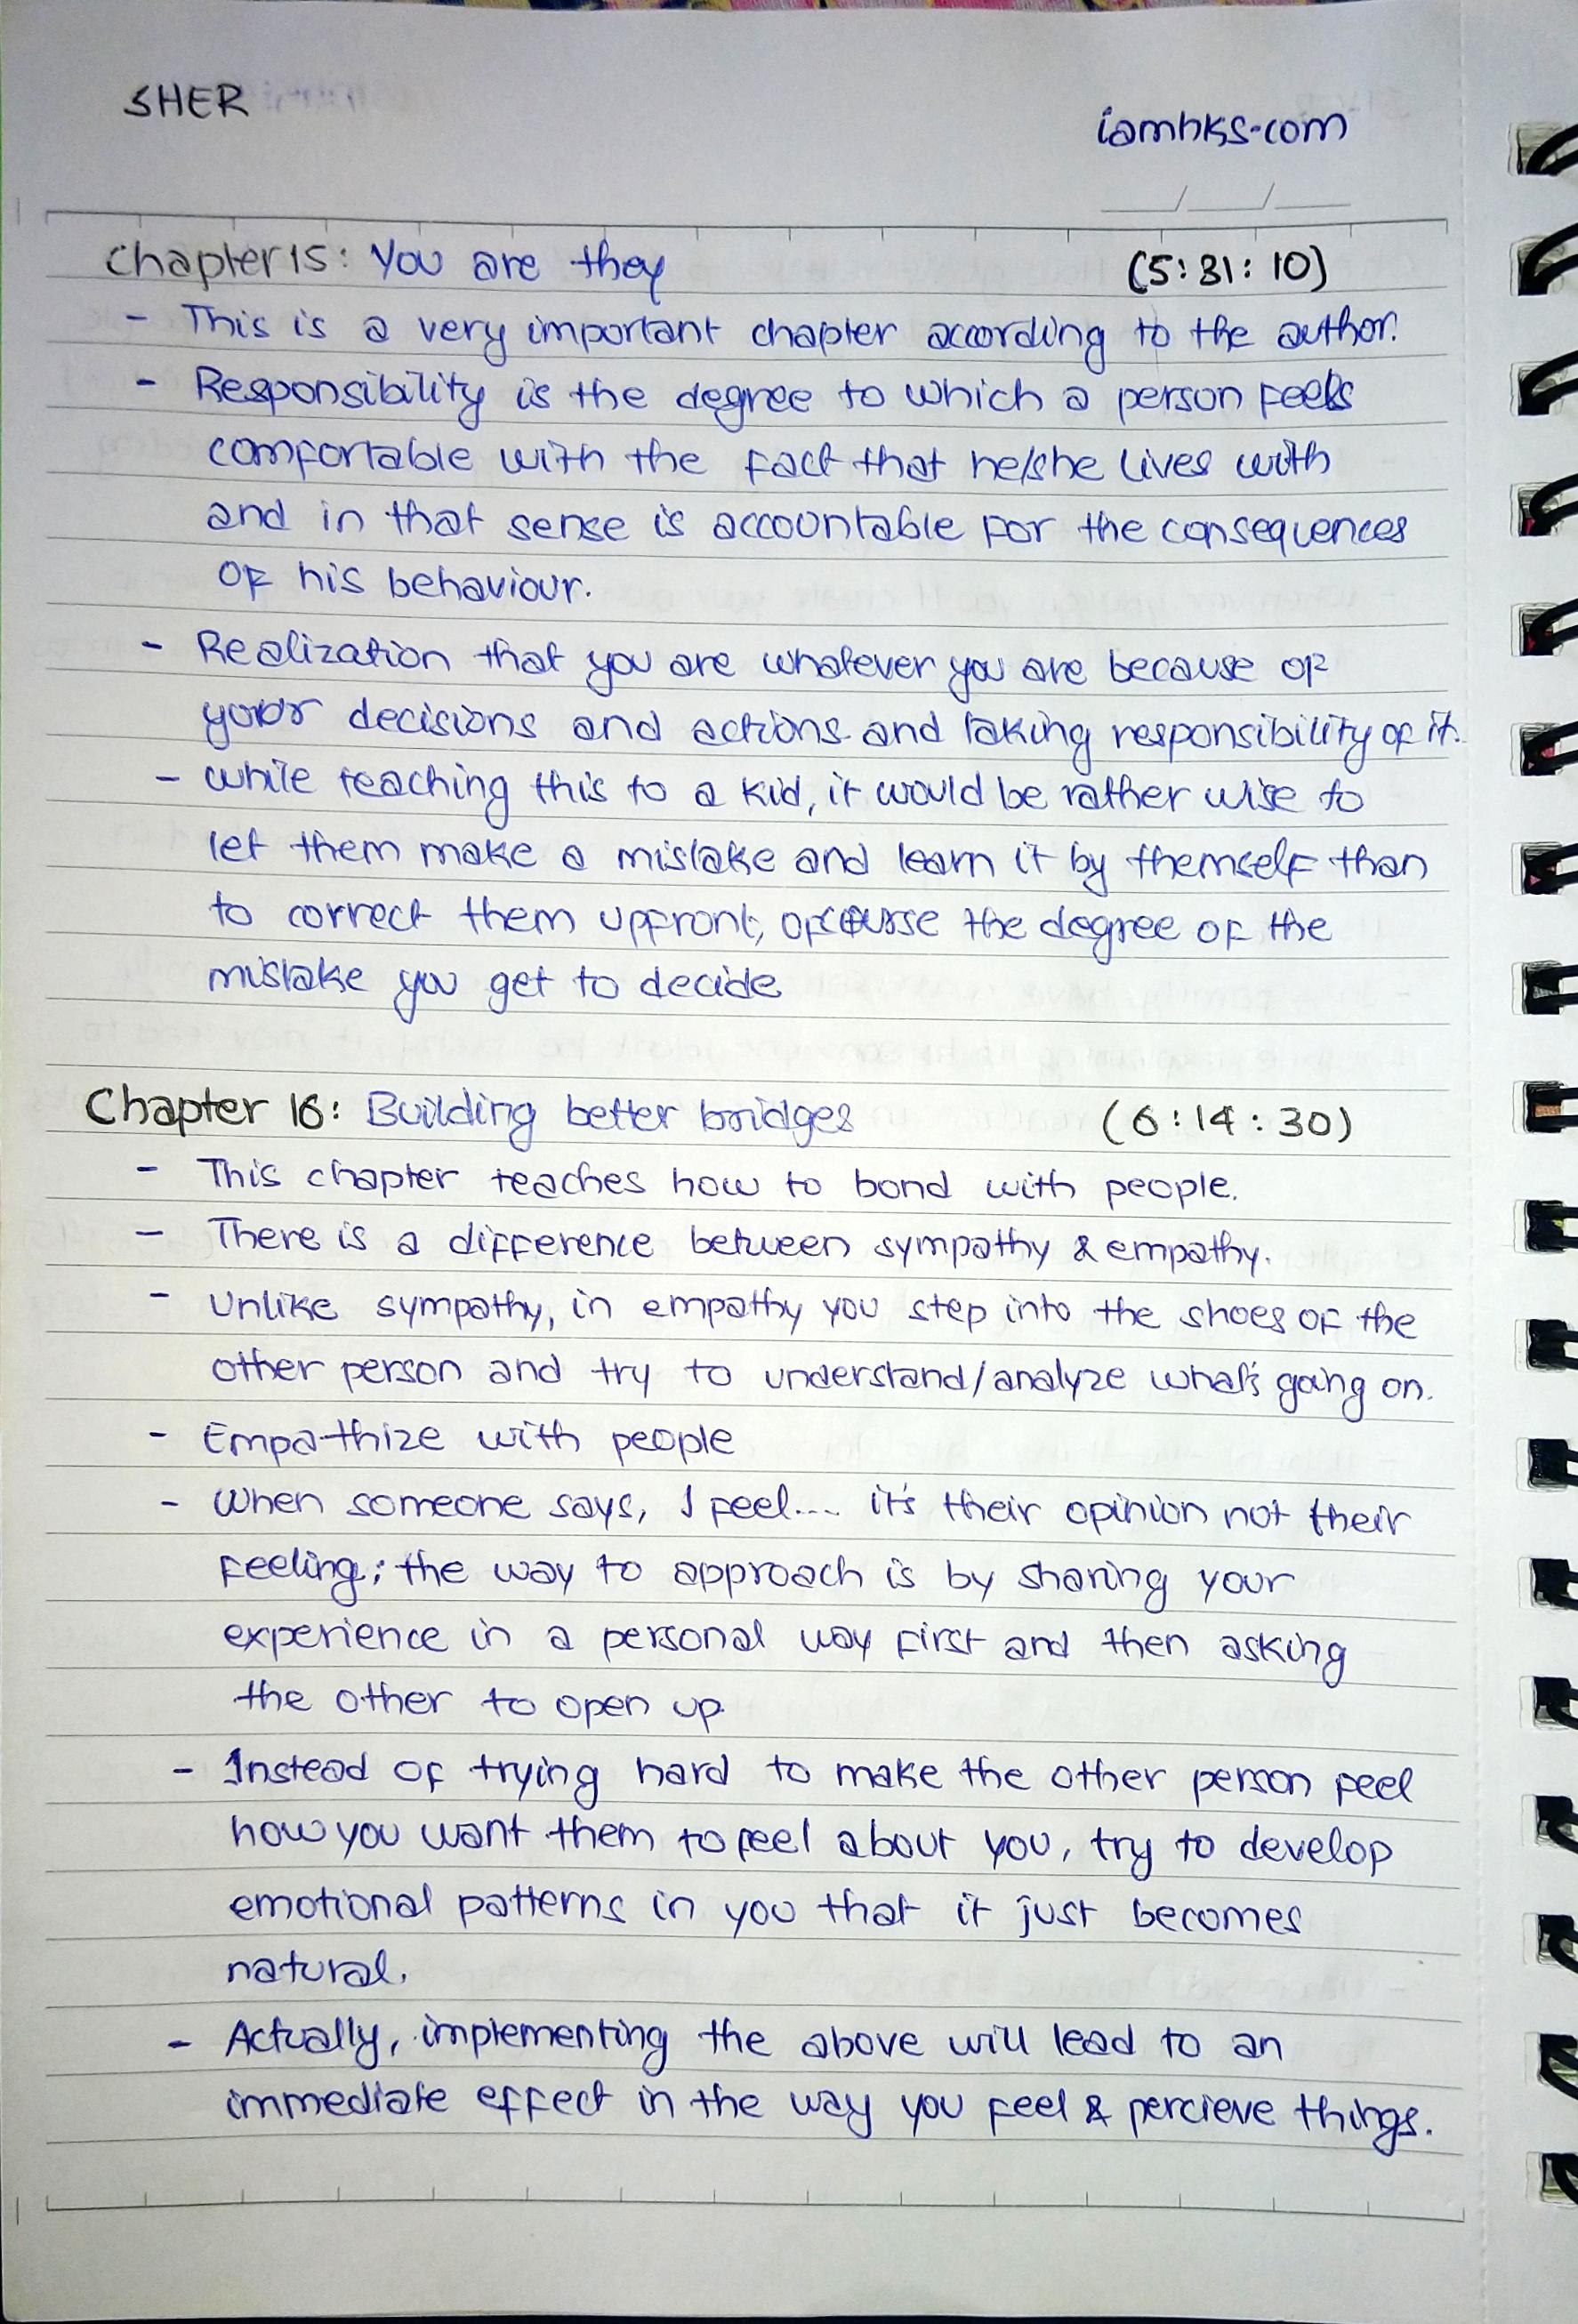 SHER
iamhks.com
Chapter 15: You are they (5:31:10)
- This is a very important chapter according to the author.
- Responsibility is the degree to which a person feels
comfortable with the fact that he/she lives with
and in that sense is accountable for the consequences
of his behaviour.
- Realization that you are whatever you are because of
your decisions and actions and taking responsibility of it.
- While teaching this to a kid, it would be rather wise to
let them make a mistake and learn it by themself than
to correct them upfront, ofcourse the degree of the
mistake you get to decide
Chapter 16: Building better bridges (6:14:30)
- This chapter teaches how to bond with people.
- There is a difference between sympathy & empathy.
- Unlike sympathy, in empathy you step into the shoes of the
other person and try to understand/analyze what's going on.
- Empathize with people
- When someone says, I feel... it's their opinion not their
feeling; the way to approach is by sharing your
experience in a personal way first and then asking
the other to open up.
- Instead of trying hard to make the other person feel
how you want them to feel about you, try to develop
emotional patterns in you that it just becomes
natural.
- Actually, implementing the above will lead to an
immediate effect in the way you feel & percieve things.